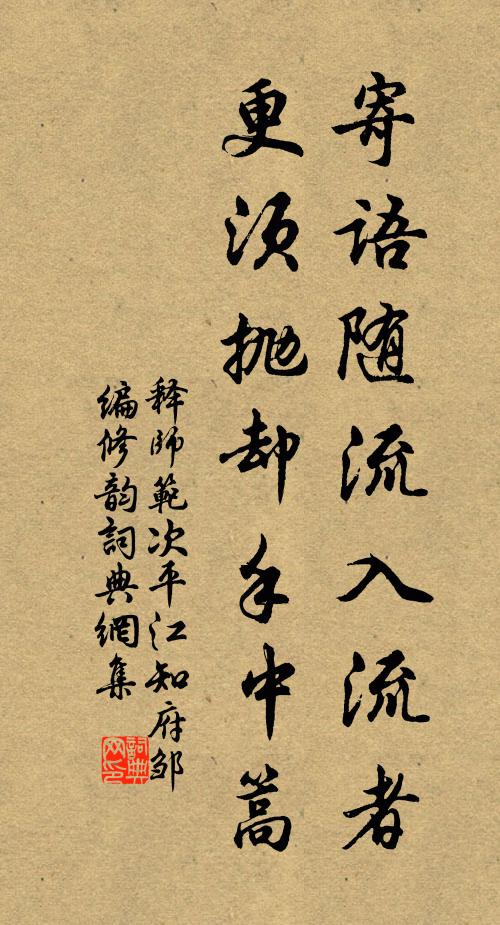 寄语随流入流者
更须抛却手中篙
释師範次平江知府邹
编修韵詞典網集
詞典网印